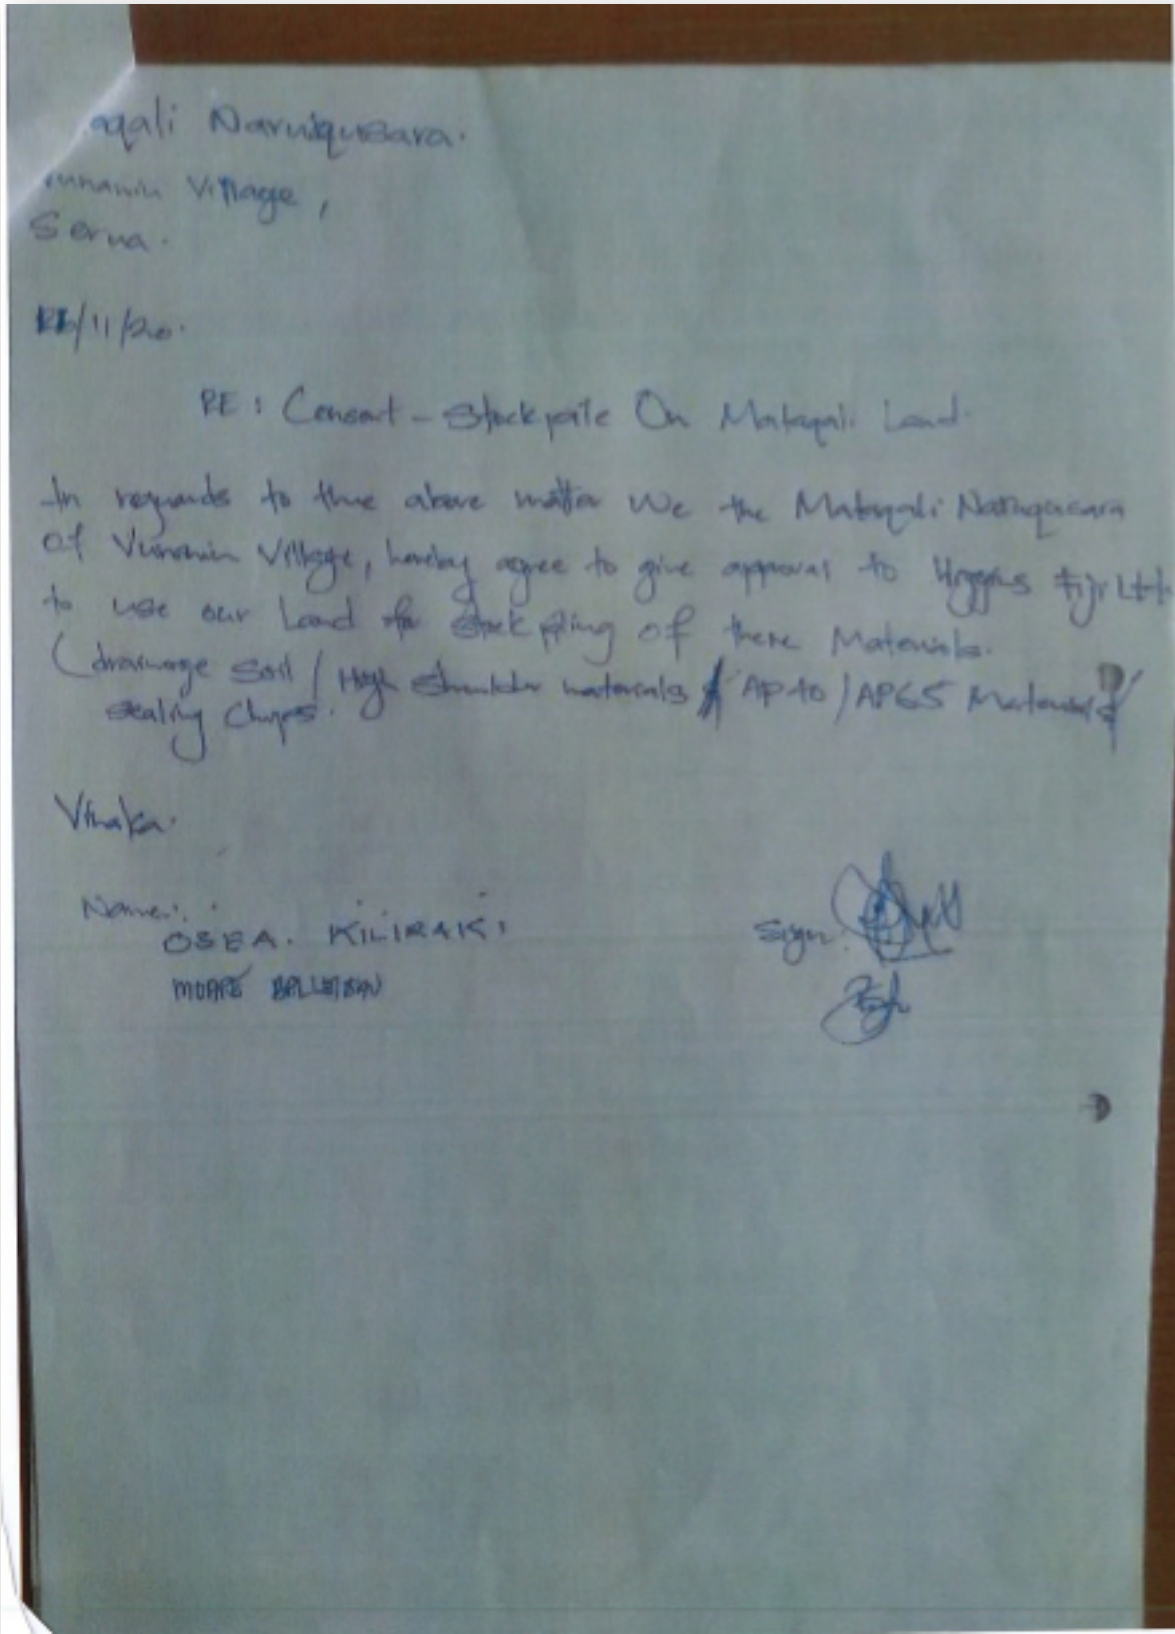 aqali Naruiqusara.
Village,
Serua.
/11/20.
RE: Consent - Stockpile On Mataqali Land.
In regards to thue above matter We the Mataqali
of Village, hereby agree to give approval to Higgins Fiji Ltd
to use our Land for Stock piling of there Materials.
(drainage Soil / High Shoulder materials / AP40 / AP65 Materials
sealing Chips.
Vinaka.
Name:
OSEA. KILIRAKI
Sign.